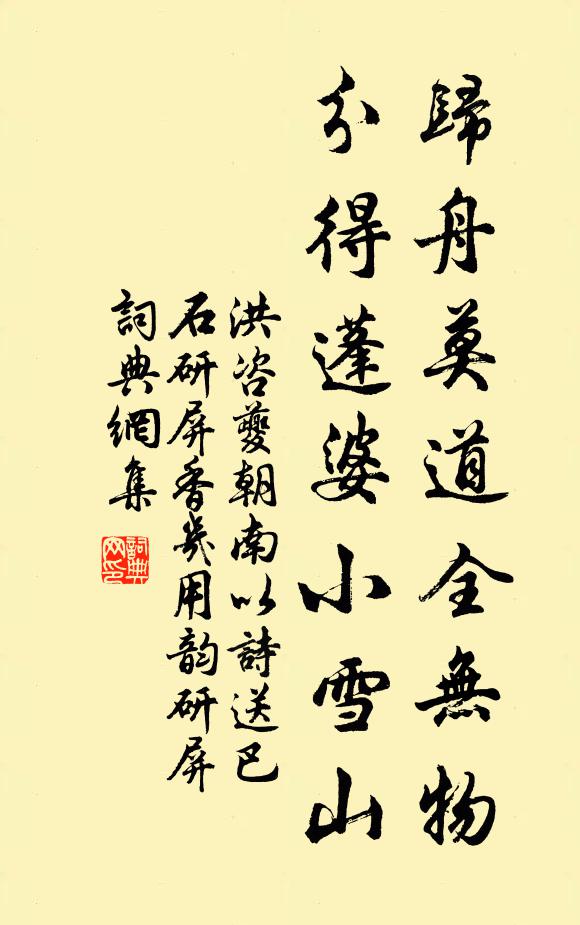 歸舟莫道全無物
分得蓬婆小雪山
洪咨夔朝南以詩送巴
石研屏香几用韵研屏
詞典網集
詞典网印